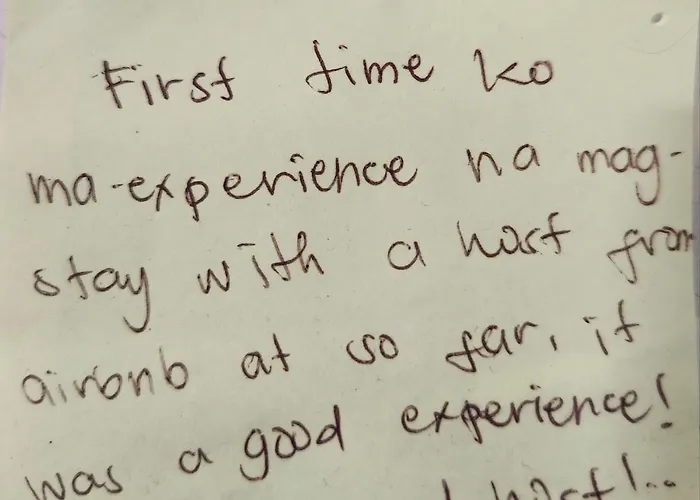 First time ko
ma-experience na mag-
stay with a host from
airbnb at so far, it
was a good experience!
host!..